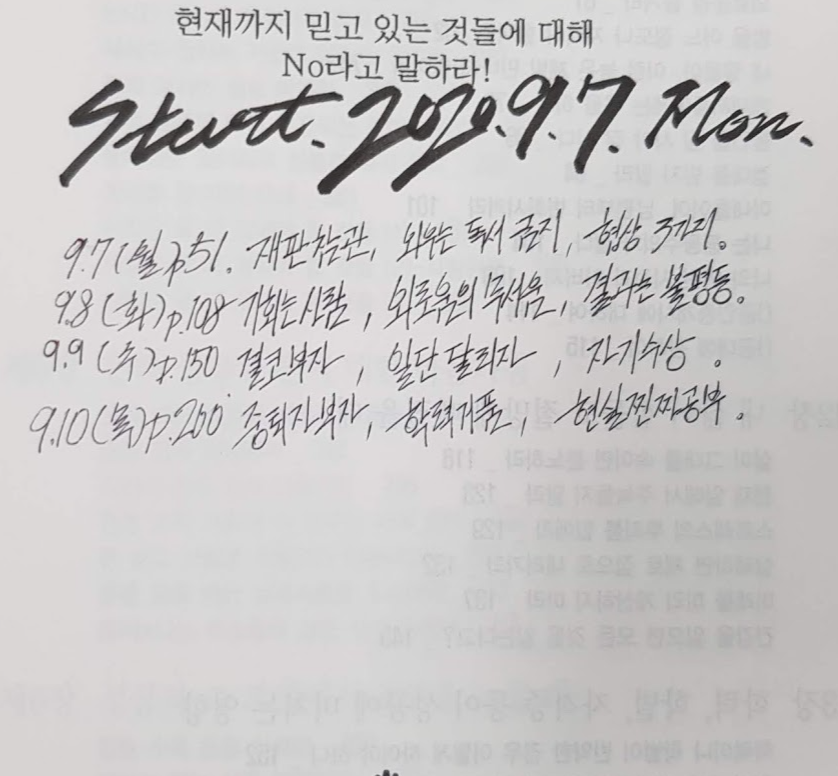 현재까지 믿고 있는 것들에 대해
No라고 말하라!
Start. 2020. 9. 7. Mon.
9.7 (월) p.51. 재판참관, 외우는 독서 금지, 협상 3가지.
9.8 (화) p.108 기회는사람, 외로움의 무서움, 결과는 불평등.
9.9 (수) p.150 결코부자, 일단 달리자, 자기수상.
9.10 (목) p.200 중퇴자부자, 학력거품, 현실진짜공부.